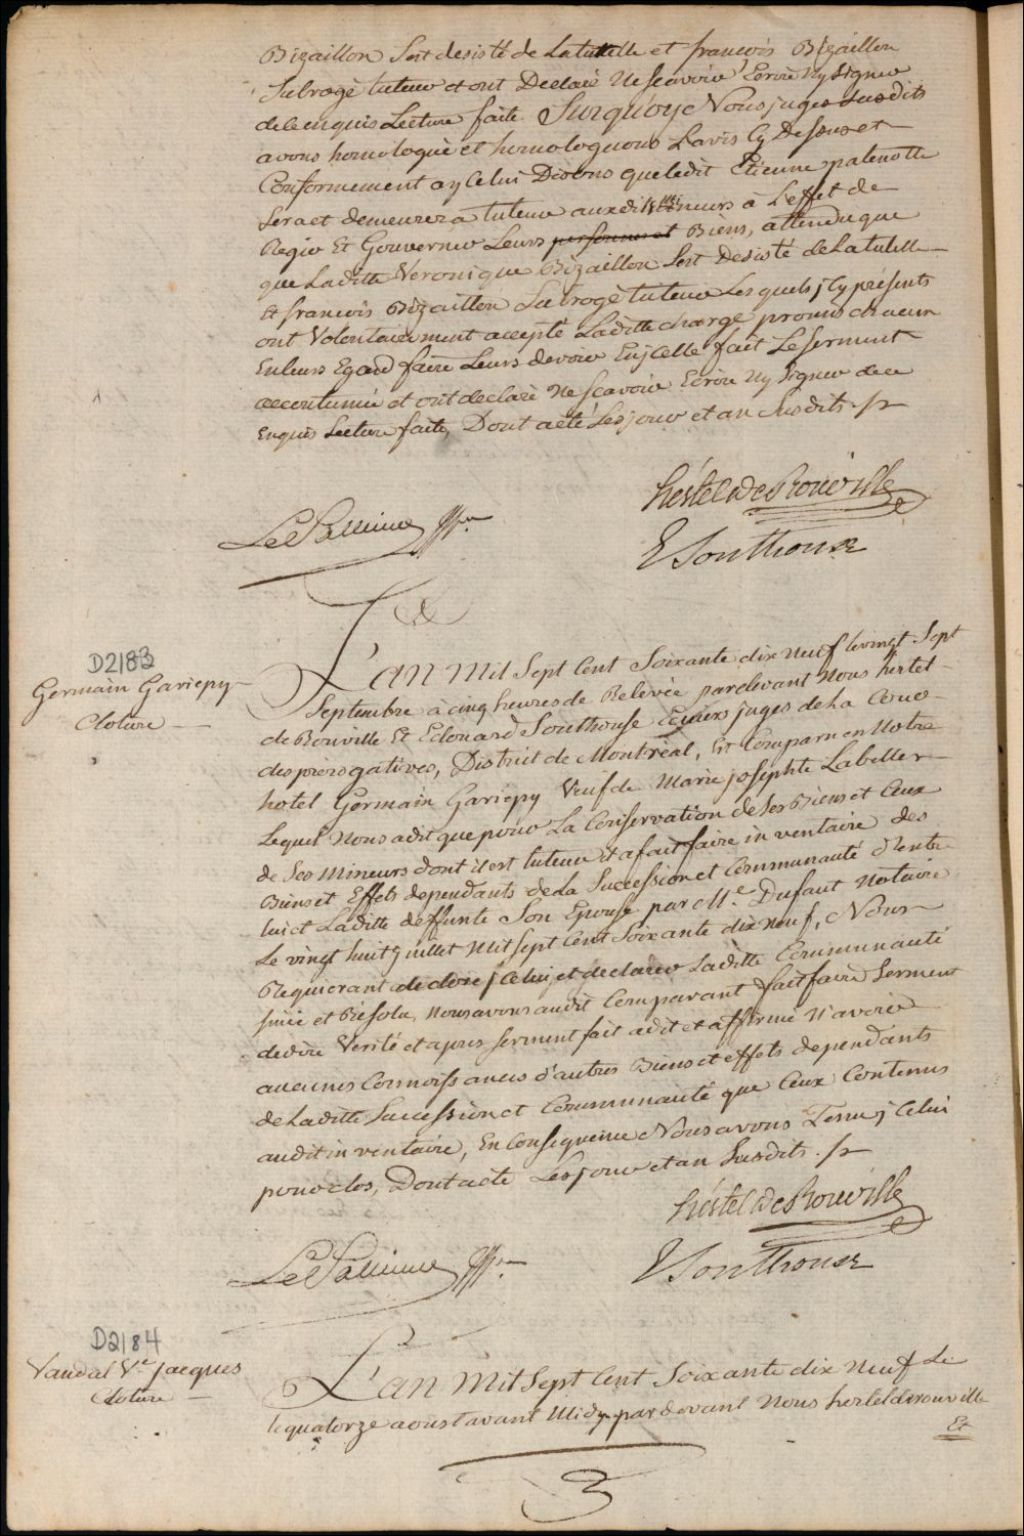 Bizaillon Sest desisté de Latutelle et francois Bizaillon
Subrogé tuteur et ont Declaré Ne scavoir Ecrire Ny Signer
de ce enquis Lecture faite. Surquoy Nous juges Susdits
avons homologué et homologuons Lavis Cy Dessus et
Conformement aycelui Disons queledit Etienne patenotte
Sera et demeurera tuteur auxdits Mineurs à L'effet de
Regir Et Gouverner Leurs personnes et Biens, attendu que
que Laditte Veronique Bizaillon Sest Desisté de La tutelle
Et francois Bizaillon Subrogé tuteur Les quels jcy présents
ont Volontairement accepté Laditte charge promis chacun
Enleurs Egard faire Leurs devoir Enjcelle fait Leserment
accoutumé et ont declaré Ne scavoir Ecrire Ny Signer de ce
Enquis Lecture faite, Dont acte Les jour et an Susdits ./.
hertel De Rouville
Le Pallieur Gffr
E Southouse
D2183
Germain Gariepy
Cloture
L'an Mil Sept Cent Soixante dix neuf levingt Sept
Septembre à cinq heures de Relevée pardevant Nous hertel
de Rouville Et Edouard Southouse Ecuiers juges de La Cour
des prerogatives, District de Montréal, Est Comparu en Notre
hotel Germain Gariepy Veuf de Marie josephte Labelle
Lequel Nous adit que pour La Conservation de Ses Biens et Ceux
de Ses Mineurs dont il est tuteur il afait faire inventaire des
Biens et Effets dependants de La Succession et Communauté D'entre
lui et Laditte deffunte Son Epouse par Me. Dufaut Notaire
Le vingt huit juillet Mil Sept Cent Soixante dix neuf, Nous
Requierant de clore jCelui et declarer Laditte Communauté
finie et Résolu, Nous avons audit Comparant fait faire Serment
dedire Verité et apres Serment fait adit et affirmé N'avoir
aucunes Connoissances d'autres Biens et effets dependants
de Laditte Succession et Communauté que Ceux Contenus
audit inventaire, En Consequence Nous avons Tenu jCelui
pour clos, Dont acte Les jour et an Susdits ./.
hertel De Rouville
Le Pallieur Gffr.
E Southouse
D2184
Vandal Ve. jacques
Cloture
L'an Mil Sept Cent Soixante dix neuf Le
le quatorze aoust avant Midy par devant Nous hertel de rouville
Et